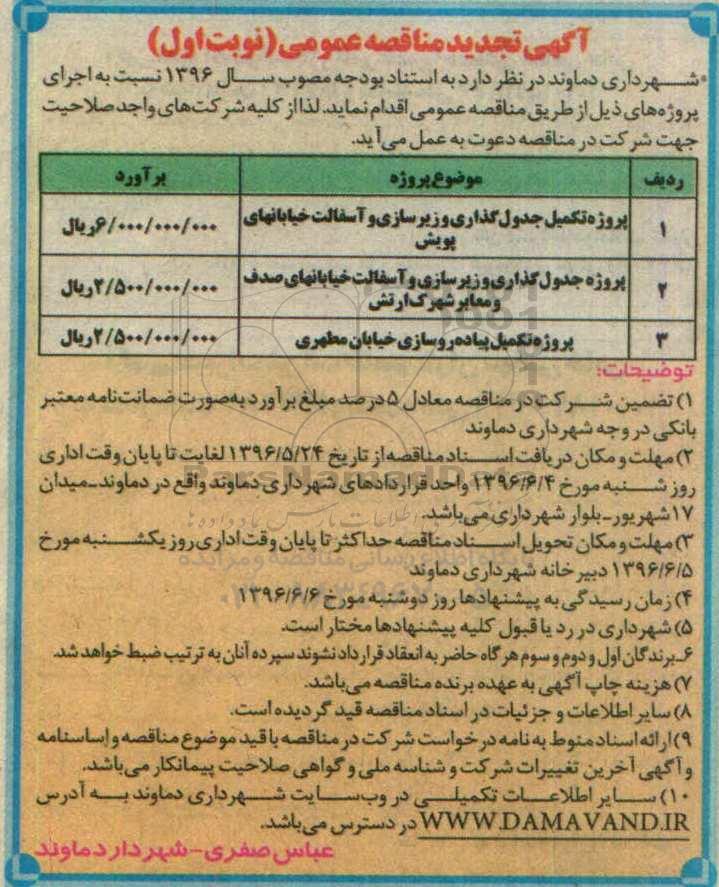 آگهی تجدید مناقصه عمومی (نوبت اول)
شهرداری دماوند در نظر دارد به استناد بودجه مصوب سال ۱۳۹۶ نسبت به اجرای
پروژه‌های ذیل از طریق مناقصه عمومی اقدام نماید. لذا از کلیه شرکت‌های واجد صلاحیت
جهت شرکت در مناقصه دعوت به عمل می‌آید.
ردیف موضوع پروژه برآورد
۱ پروژه تکمیل جدول گذاری و زیرسازی و آسفالت خیابانهای پویش ۶/۰۰۰/۰۰۰/۰۰۰ریال
۲ پروژه جدول گذاری و زیرسازی و آسفالت خیابانهای صدف و معابر شهرک ارتش ۲/۵۰۰/۰۰۰/۰۰۰ریال
۳ پروژه تکمیل پیاده‌روسازی خیابان مطهری ۲/۵۰۰/۰۰۰/۰۰۰ریال
توضیحات:
۱) تضمین شرکت در مناقصه معادل ۵ درصد مبلغ برآورد به‌صورت ضمانت‌نامه معتبر
بانکی در وجه شهرداری دماوند
۲) مهلت و مکان دریافت اسناد مناقصه از تاریخ ۱۳۹۶/۵/۲۴ لغایت تا پایان وقت اداری
روز شنبه مورخ ۱۳۹۶/۶/۴ واحد قراردادهای شهرداری دماوند واقع در دماوند-میدان
۱۷ شهریور-بلوار شهرداری می‌باشد.
۳) مهلت و مکان تحویل اسناد مناقصه حداکثر تا پایان وقت اداری روز یکشنبه مورخ
۱۳۹۶/۶/۵ دبیرخانه شهرداری دماوند
۴) زمان رسیدگی به پیشنهادها روز دوشنبه مورخ ۱۳۹۶/۶/۶
۵) شهرداری در رد یا قبول کلیه پیشنهادها مختار است.
۶- برندگان اول و دوم و سوم هرگاه حاضر به انعقاد قرارداد نشوند سپرده آنان به ترتیب ضبط خواهد شد.
۷) هزینه چاپ آگهی به عهده برنده مناقصه می‌باشد.
۸) سایر اطلاعات و جزئیات در اسناد مناقصه قید گردیده است.
۹) ارائه اسناد منوط به نامه درخواست شرکت در مناقصه با قید موضوع مناقصه و اساسنامه
و آگهی آخرین تغییرات شرکت و شناسه ملی و گواهی صلاحیت پیمانکار می‌باشد.
۱۰) سایر اطلاعات تکمیلی در وب‌سایت شهرداری دماوند به آدرس
WWW.DAMAVAND.IR در دسترس می‌باشد.
عباس صفری-شهردار دماوند